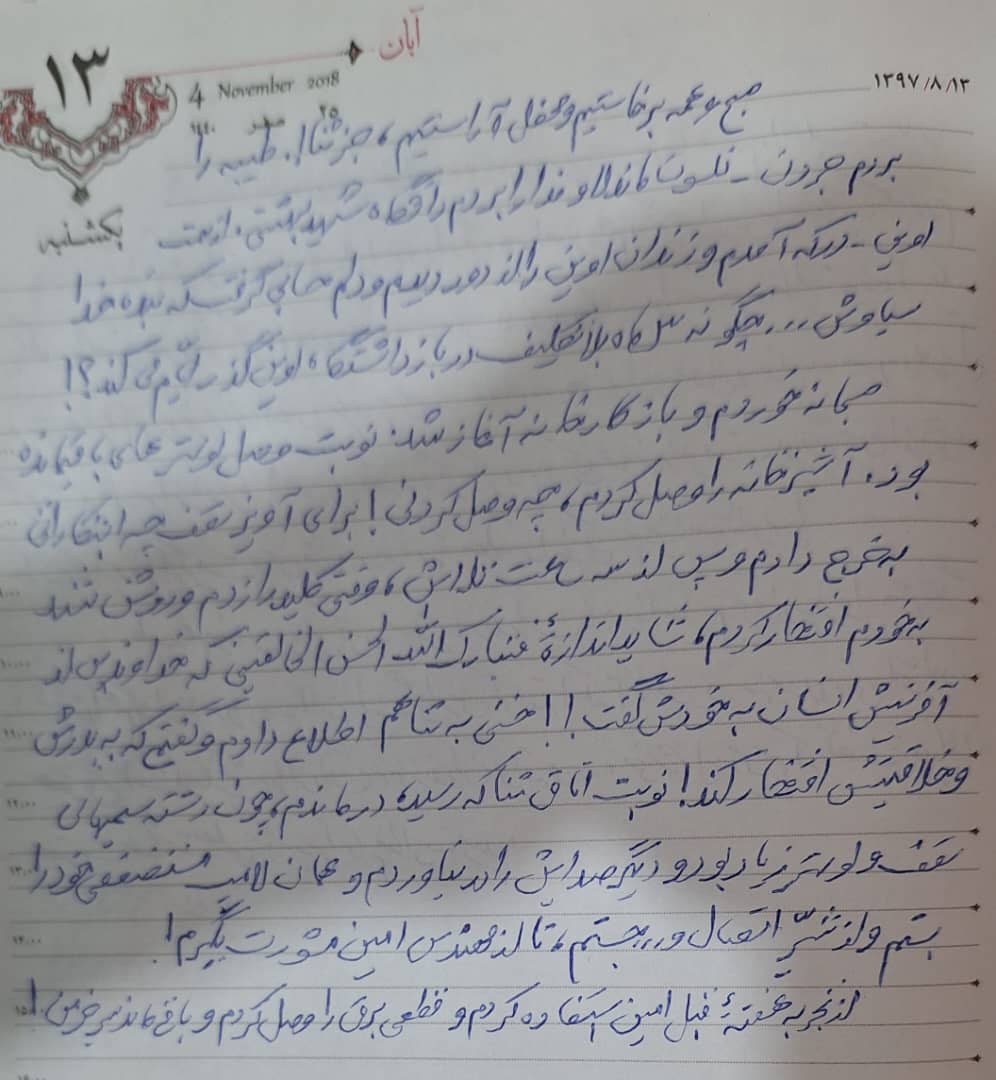 آبان
۱۳
4 November 2018
۲۵ صفر ۱۴۴۰
یکشنبه
۱۳۹۷/۸/۱۳
صبح و همه برخاستیم و محفل آراستیم، جز ثنا!. طیبه را
بردم جردن - نلسون ماندلا و ندا را بردم دانشگاه شهید بهشتی. از سمت
اوین - درکه آمدم و زندان اوین را از دور دیدم و دلم حسابی گرفت که بنده خدا
سیاوش ... چگونه ۳ ماه بلاتکلیف در بازداشتگاه اوین گذران می‌کند؟!
صبحانه خوردم و باز کارخانه آغاز شد. نوبت وصل لوسترهای باقیمانده
بود. آشپزخانه را وصل کردم، چه وصل کردنی! برای آویز سقف چه ابتکاراتی
به خرج دادم و پس از سه ساعت تلاش، وقتی کلید را زدم و روشن شد
به خودم افتخار کردم، شاید اندازهٔ فتبارک الله احسن الخالقین که خداوند پس از
آفرینش انسان به خودش گفت!! حتی به ثنا هم اطلاع دادم و گفتم که به پدرش
و خلاقیتش افتخار کند! نوبت اتاق ثنا که رسید، درماندم، چون رشته سیمهای
سقف و لوستر زیاد بود و دیگر صدایش را در نیاوردم و همان لامپ مستضعفی خود را
بستم و از شرّ اتصال و ... جستم، تا از مهندس امین مشورت بگیرم!
از تجربه هفتهٔ قبل امین استفاده کردم و قطعی برق را وصل کردم و باقی ماند